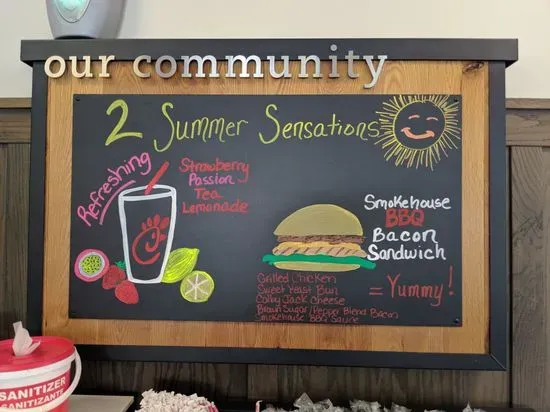 our community
2 Summer Sensations
Refreshing
Strawberry
Passion
Tea
Lemonade
Smokehouse
BBQ
Bacon
Sandwich
= Yummy!
Grilled Chicken
Sweet Yeast Bun
Colby Jack Cheese
Brown Sugar/Pepper Blend Bacon
Smokehouse BBQ Sauce
SANITIZER
SANITIZANTE